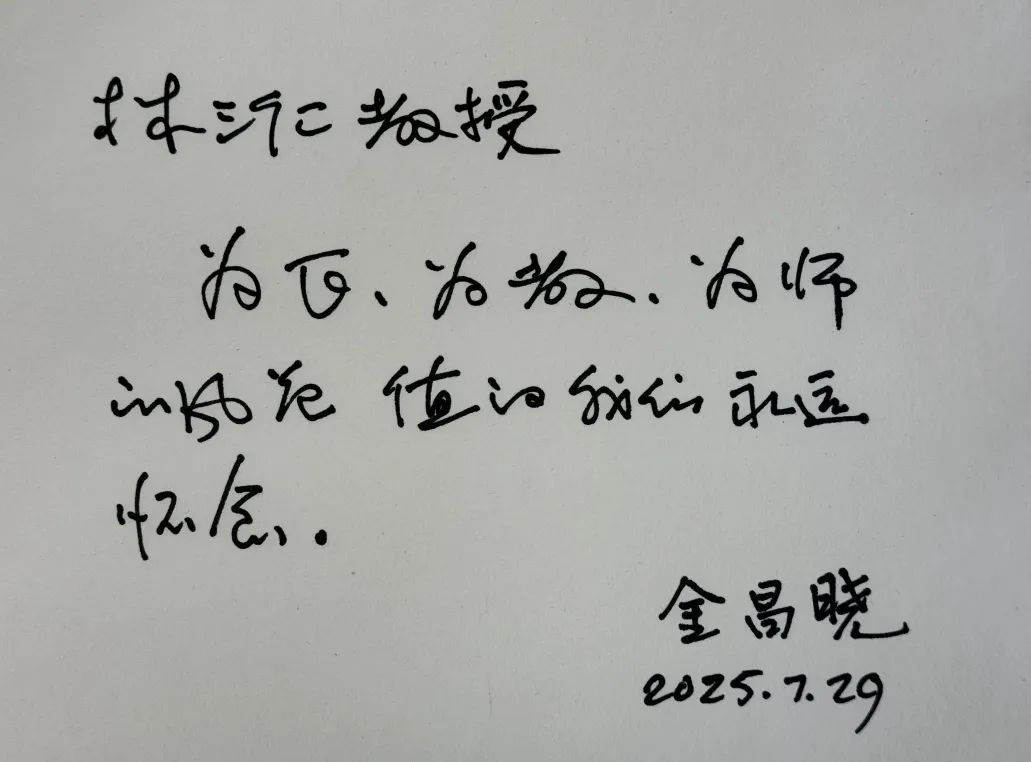 林三仁教授
为医、为教、为师
的风范 值得我们永远
怀念.
金昌晓
2025.7.29